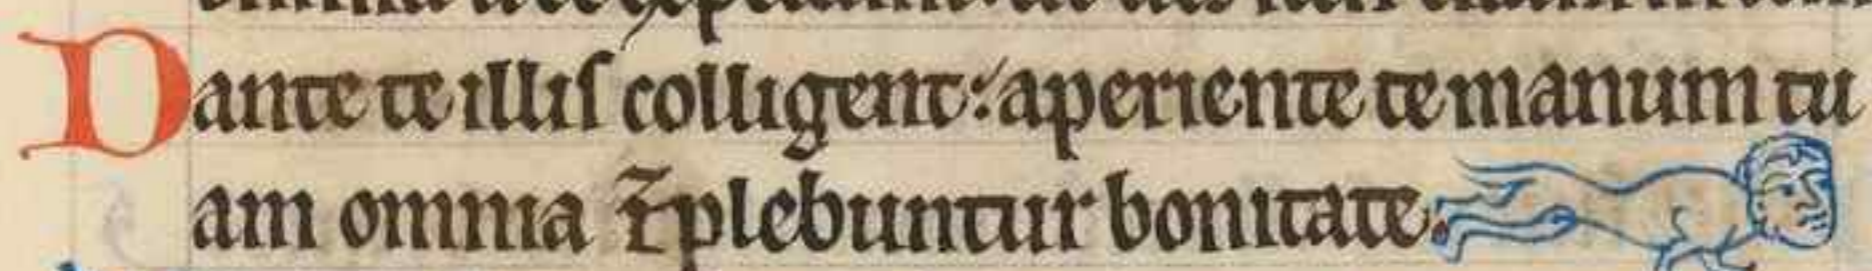 Dante te illis colligent: aperiente te manum tu
am omnia īplebuntur bonitate.